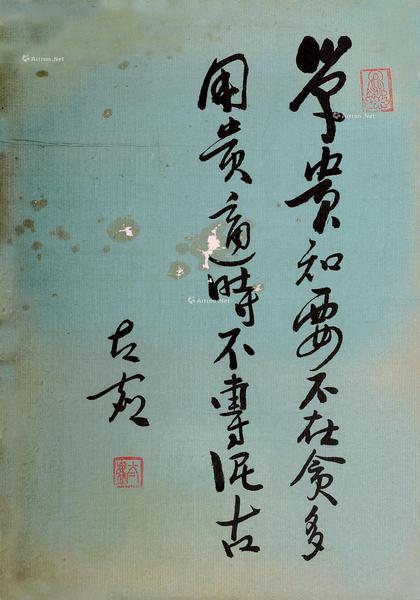 學貴知要不在貪多
用貴適時不專泥古
Artron.Net
Artron.Net
Artron.Net